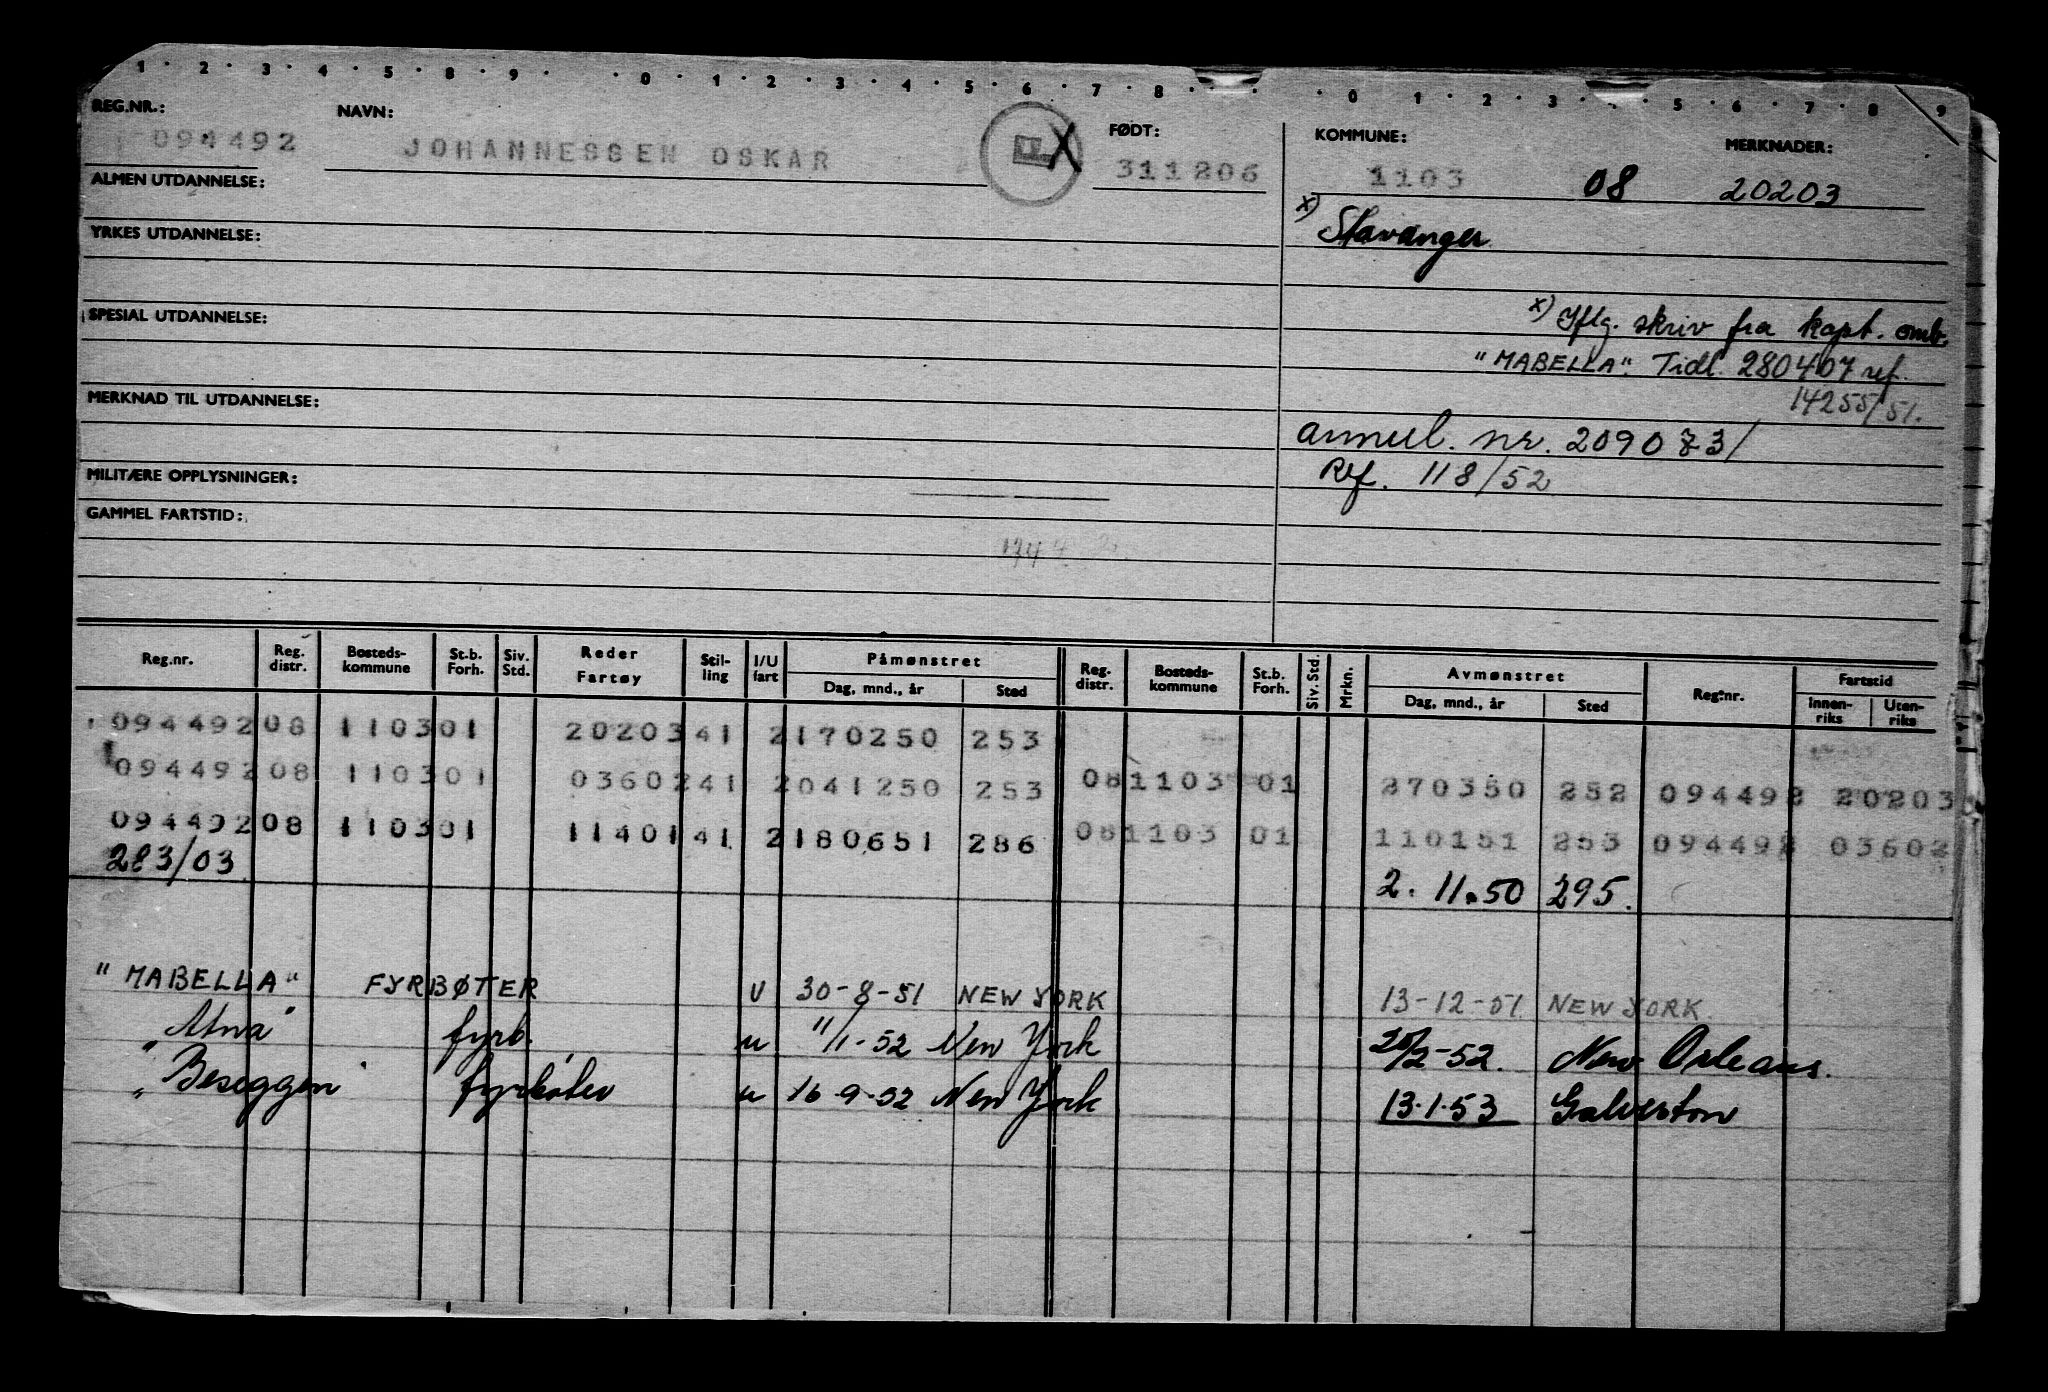 1 · 2 · 3 · 4 · 5 · 8 · 9 · · 0 · 1 · 2 · 3 · 4 · 5 · 6 · 7 · 8 · · 0 · 1 · 2 · 3 · 5 · 6 · 7 · 8 · 9
REG.NR.: NAVN: FØDT: KOMMUNE: MERKNADER:
094492 JOHANNESSEN OSKAR F X 311206 1103 08 20203
ALMEN UTDANNELSE:
x) Stavanger
YRKES UTDANNELSE:
SPESIAL UTDANNELSE:
x) Iflg. skriv fra kapt. omb.
"MABELLA". Tidl. 280407 ref.
14255/51.
MERKNAD TIL UTDANNELSE:
annul. nr. 209073/
Ref. 118/52
MILITÆRE OPPLYSNINGER:
GAMMEL FARTSTID:
Reg.nr. Reg. distr. Bosteds-kommune St.b. Forh. Siv. Std. Reder Fartøy Stil-ling I/U fart Påmønstret Dag, mnd., år Sted Reg. distr. Bosteds-kommune St.b. Forh. Siv. Std. Mrkn. Avmønstret Dag, mnd., år Sted Reg.nr. Fartstid Innen-riks Uten-riks
094492 08 1103 01 20203 41 2 170250 253
094492 08 1103 01 03602 41 2 041250 253 08 1103 01 270350 252 094492 20203
094492 08 1103 01 11401 41 2 180651 286 08 1103 01 110151 253 094492 03602
283/03 2. 11.50 295.
"MABELLA" FYRBØTER U 30-8-51 NEW YORK 13-12-51 NEW YORK.
"Atna" fyrb. u 11/1-52 New York /2-52. New Orleans.
"Beseggen" fyrbøter u 16-9-52 New York 13.1.53 Galveston